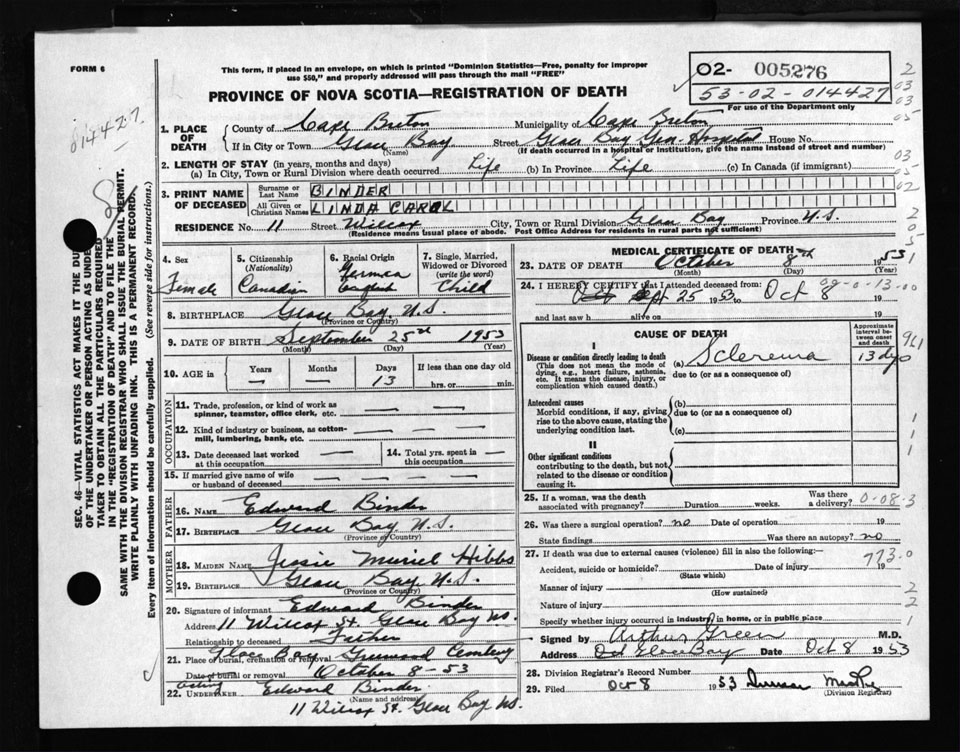 FORM 6
This form, if placed in an envelope, on which is printed "Dominion Statistics—Free, penalty for improper
use $50," and properly addressed will pass through the mail "FREE"
PROVINCE OF NOVA SCOTIA—REGISTRATION OF DEATH
02- 005276
53-02-014427
For use of the Department only
014427.
SEC. 46—VITAL STATISTICS ACT MAKES IT THE DU
OF THE UNDERTAKER OR PERSON ACTING AS UNDE
TAKER TO OBTAIN ALL THE PARTICULARS REQUIRED
IN THE "REGISTRATION OF DEATH" AND TO FILE THE
SAME WITH THE DIVISION REGISTRAR WHO SHALL ISSUE THE BURIAL PERMIT.
WRITE PLAINLY WITH UNFADING INK. THIS IS A PERMANENT RECORD.
Every item of information should be carefully supplied. (See reverse side for instructions.)
1. PLACE OF DEATH
County of Cape Breton Municipality of Cape Breton
If in City or Town Glace Bay Street Glace Bay Gen. Hospital House No.
(Name) (If death occurred in a hospital or institution, give the name instead of street and number)
2. LENGTH OF STAY (in years, months and days)
(a) In City, Town or Rural Division where death occurred Life (b) In Province Life (c) In Canada (if immigrant)
3. PRINT NAME OF DECEASED
Surname or Last Name BINDER
All Given or Christian Names LINDA CAROL
RESIDENCE No. 11 Street Wilcox City, Town or Rural Division Glace Bay Province N.S.
(Residence means usual place of abode. Post Office Address for residents in rural parts not sufficient)
4. Sex Female
5. Citizenship (Nationality) Canadian
6. Racial Origin German English
7. Single, Married, Widowed or Divorced (write the word) Child
8. BIRTHPLACE Glace Bay, N.S.
(Province or Country)
9. DATE OF BIRTH September 25th 1953
(Month) (Day) (Year)
10. AGE in Years — Months — Days 13 If less than one day old hrs. or min.
OCCUPATION
11. Trade, profession, or kind of work as
spinner, teamster, office clerk, etc. — —
12. Kind of industry or business, as cotton-
mill, lumbering, bank, etc. — —
13. Date deceased last worked
at this occupation —
14. Total yrs. spent in
this occupation —
15. If married give name of wife
or husband of deceased — —
FATHER
16. NAME Edward Binder
17. BIRTHPLACE Glace Bay N.S.
(Province or Country)
MOTHER
18. MAIDEN NAME Jessie Muriel Hibbs
19. BIRTHPLACE Glace Bay N.S.
(Province or Country)
20. Signature of informant Edward Binder
Address 11 Wilcox St. Glace Bay NS.
Relationship to deceased Father
Glace Bay Greenwood Cemetery
21. Place of burial, cremation or removal
Date of burial or removal October 8-53
Acting
22. UNDERTAKER Edward Binder
(Name and address)
11 Wilcox St. Glace Bay NS.
MEDICAL CERTIFICATE OF DEATH
23. DATE OF DEATH October 8th 1953
(Month) (Day) (Year)
24. I HEREBY CERTIFY that I attended deceased from: 09-0-13-00
Sept 25 1953 to Oct 8 19
and last saw h alive on 19
CAUSE OF DEATH
Approximate interval between onset and death
I
Disease or condition directly leading to death
(This does not mean the mode of
dying, e.g., heart failure, asthenia,
etc. It means the disease, injury, or
complication which caused death.)
(a) Sclerema 13 dys
due to (or as a consequence of)
Antecedent causes
Morbid conditions, if any, giving
rise to the above cause, stating the
underlying condition last.
(b)
due to (or as a consequence of)
(c)
II
Other significant conditions
contributing to the death, but not
related to the disease or condition
causing it.
25. If a woman, was the death
associated with pregnancy? Duration weeks. Was there a delivery? 0-08-3
26. Was there a surgical operation? no Date of operation 19
State findings Was there an autopsy? no
27. If death was due to external causes (violence) fill in also the following:—
773-0
Accident, suicide or homicide? Date of injury 19
(State which)
Manner of injury
(How sustained)
Nature of injury
Specify whether injury occurred in industry, in home, or in public place
Signed by Arthur Green M.D.
Address Glace Bay Date Oct 8 1953
28. Division Registrar's Record Number
29. Filed Oct 8 1953
(Division Registrar)